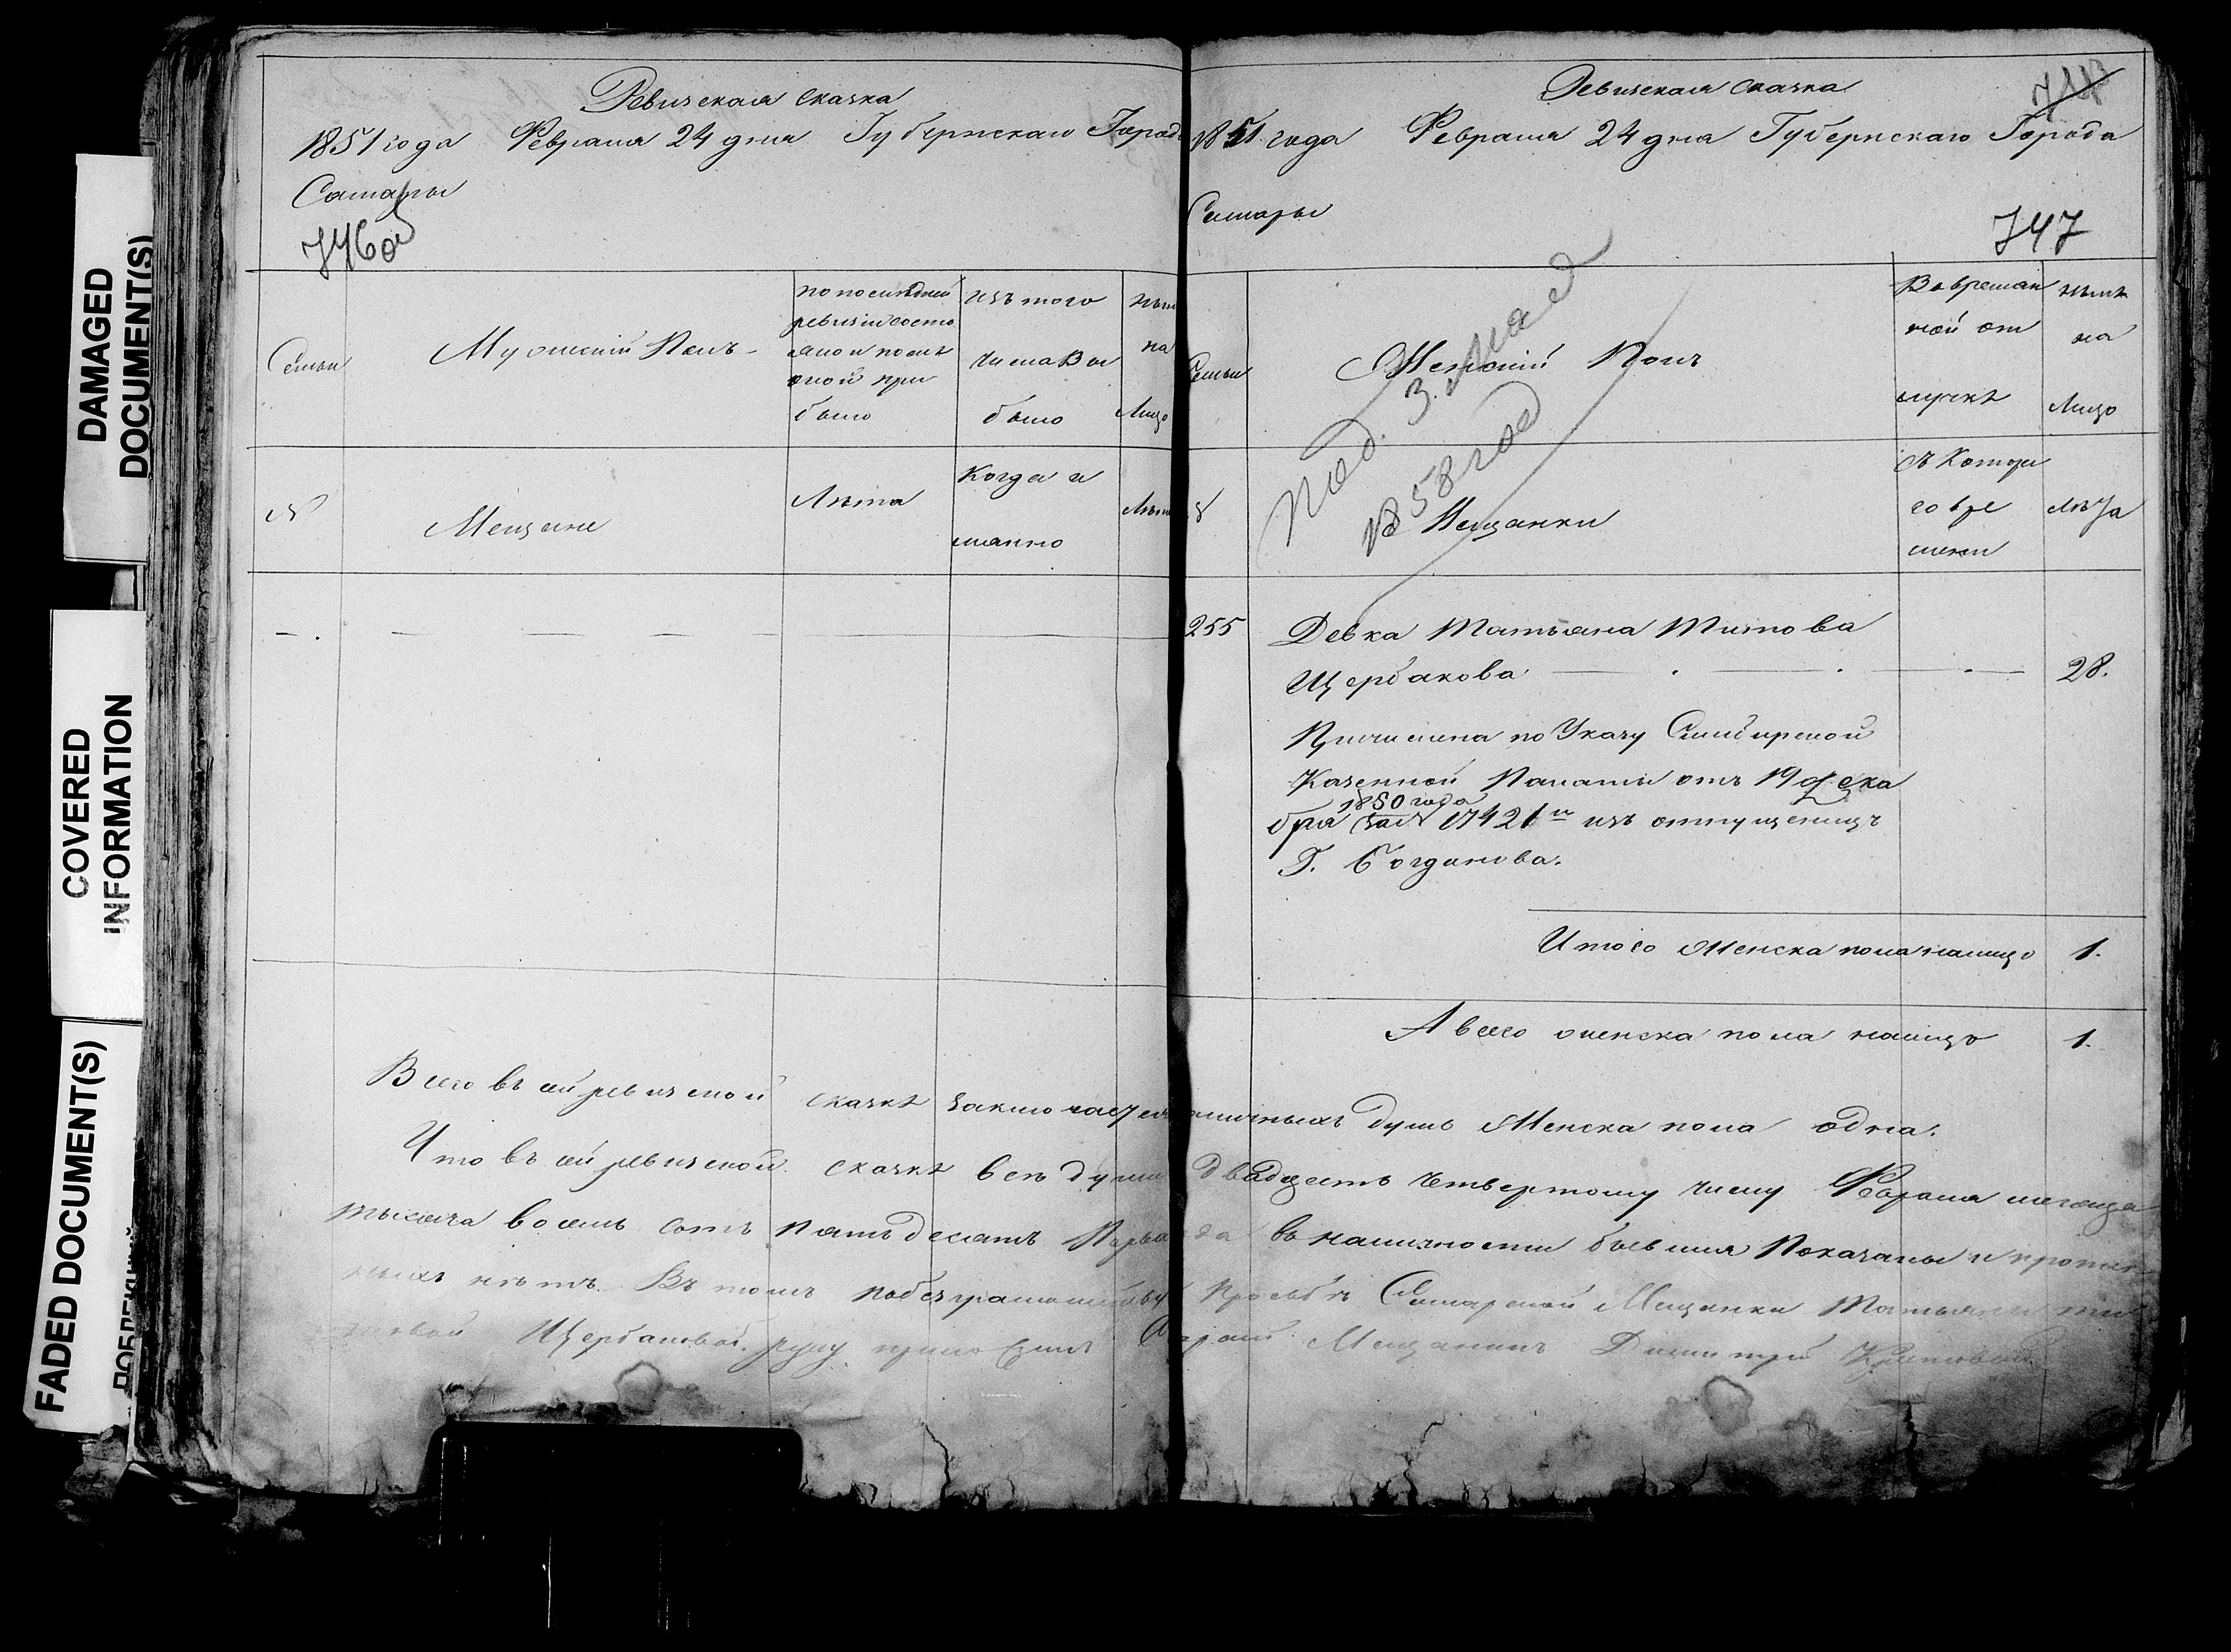 DAMAGED
DOCUMENT(S)
COVERED
INFORMATION
FADED DOCUMENT(S)
Ревизская сказка
1851 года Февраля 24 дня Губернскаго Города
Самары
746об
Семьи
Мужеский Полъ
по последней
ревизіи состо
яло и после
оной при
было
изъ того
числа Вы
было
ныне
на
Лицо
№
Мещане
Лета
Когда и
именно
Лета
Ревизская сказка
1851 года Февраля 24 дня Губернскаго Города
Самары
747
Семьи
Женский Полъ
Во времян
ной от
лучке
ныне
на
Лицо
под. 3. Мая
1858 год
№
Мещанки
съ Которо
го вре
мени
Лета
255
Девка Татьяна Титова
Щербакова
28.
Причислена по Указу Симбирской
Казенной Палаты отъ 19 дека
бря 1850 года за № 17421м изъ отпущеницъ
Г. Богданова.
Итого женска пола налицо 1.
А всего женска пола налицо 1.
Всего въ сей ревизской сказке заключается наличныхъ душъ Женска пола одна.
Что въ сей ревизской сказке все души двадцать четвертому числу Февраля месяца
тысяча восемь сотъ пятьдесятъ Перва года въ наличности бывшия Показаны и
нетъ. Въ томъ по безграмотству Просьбе Самарской Мещанки Татьяны Ти
товой Щербаковой. руку приложилъ Мещанинъ Димитрй